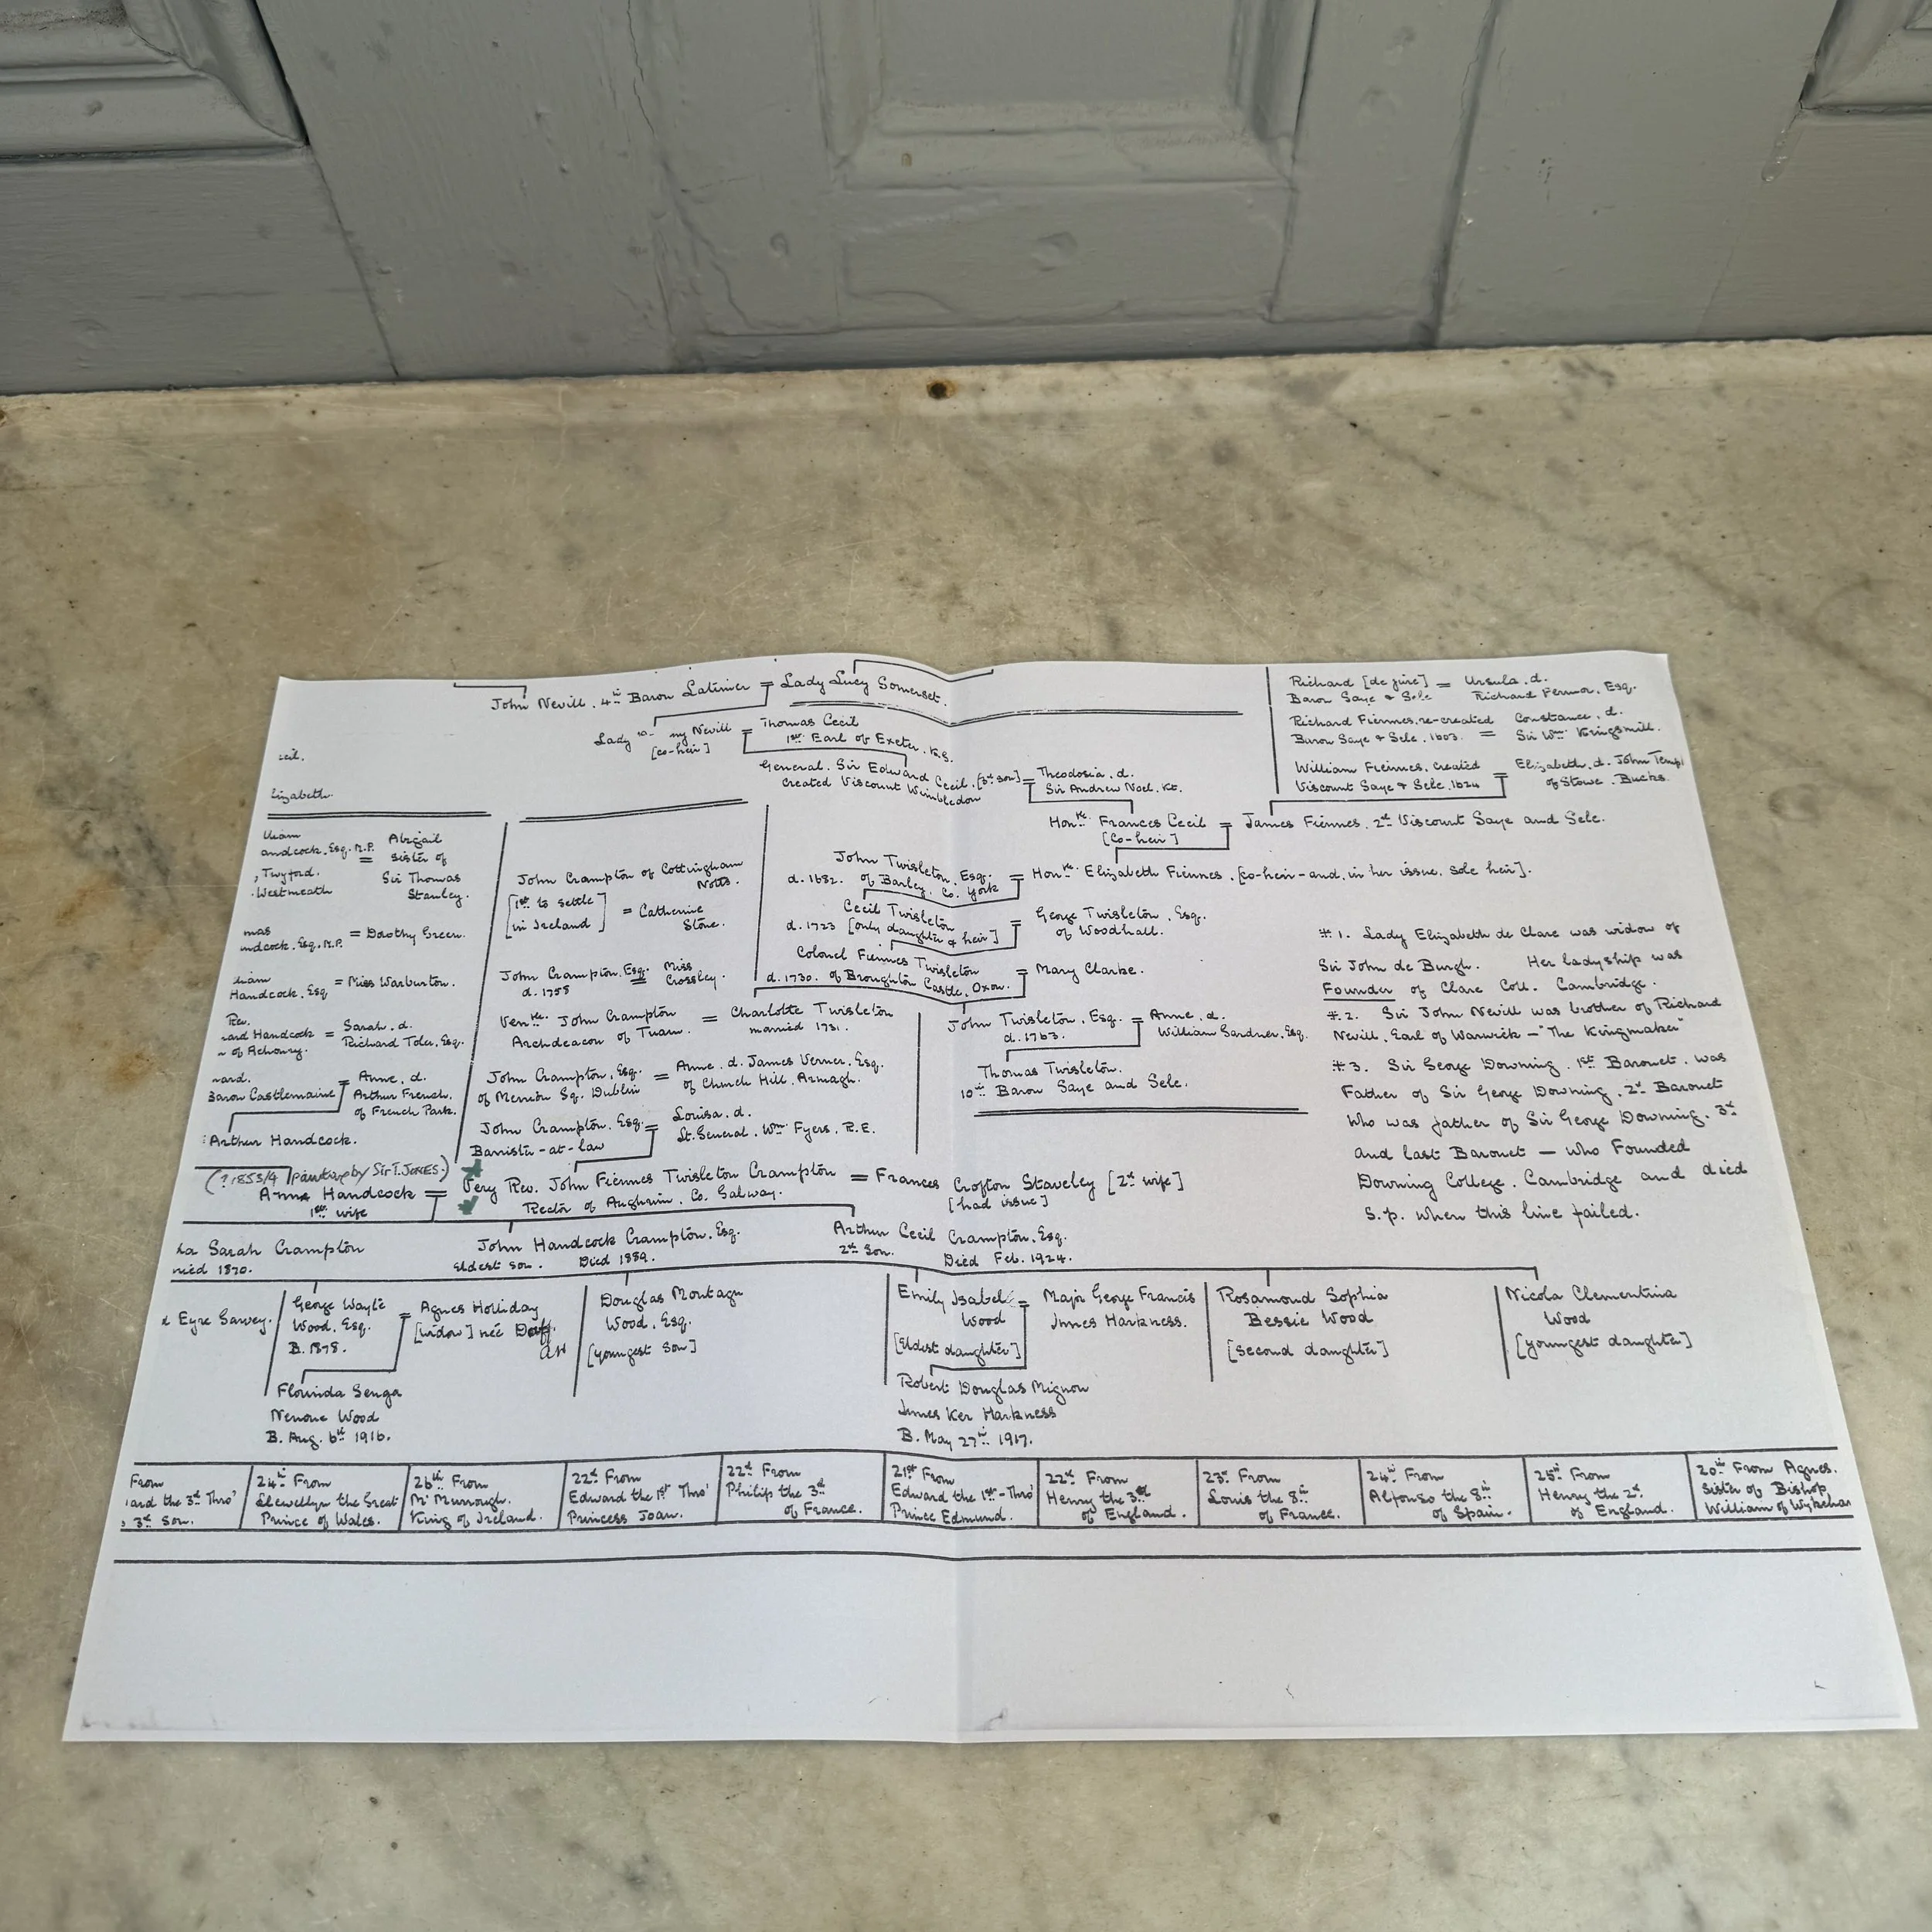 John Nevill. 4th Baron Latimer = Lady Lucy Somerset.
Lady my Nevill = Thomas Cecil
[co-heir] 1st Earl of Exeter. K.G.
General. Sir Edward Cecil. [3rd son] = Theodosia. d.
created Viscount Wimbledon Sir Andrew Noel. Kt.
Richard [de jure] = Ursula. d.
Baron Saye & Sele Richard Fermor. Esq.
Richard Fiennes. re-created Constance. d.
Baron Saye & Sele. 1603. = Sir Wm Kingsmill.
William Fiennes. created = Elizabeth. d. John Templ
Viscount Saye & Sele. 1624 of Stowe. Bucks.
Hon'ble Frances Cecil = James Fiennes. 2nd Viscount Saye and Sele.
[co-heir]
cil.
lizabeth.
lliam
andcock. Esq. M.P. = Abigail
, Twyford. sister of
. Westmeath Sir Thomas
Stanley.
mas
ndcock. Esq. M.P. = Dorothy Green.
lliam
Handcock. Esq = Miss Warburton.
Rev.
ard Handcock = Sarah. d.
n of Achonry. Richard Toler. Esq.
ward.
Baron Castlemaine = Anne. d.
Arthur French.
of French Park.
Arthur Handcock.
John Crampton of Cottingham
Notts.
[1st to settle
in Ireland] = Catherine
Stone.
John Crampton. Esq. = Miss
d. 1758 Crossley.
Ven'ble John Crampton = Charlotte Twisleton
Archdeacon of Tuam. married 1731.
John Crampton. Esq. = Anne. d. James Verner. Esq.
of Merrion Sq. Dublin of Church Hill. Armagh.
John Crampton. Esq. = Louisa. d.
Barrister-at-law Lt. General. Wm Fyers. R.E.
John Twisleton. Esq. = Hon'ble Elizabeth Fiennes. [co-heir-and, in her issue, sole heir].
d. 1682. of Barley. Co. York
Cecil Twisleton = George Twisleton. Esq.
d. 1723 [only daughter & heir] of Woodhall.
Colonel Fiennes Twisleton = Mary Clarke.
d. 1730. of Broughton Castle. Oxon.
John Twisleton. Esq. = Anne. d.
d. 1763. William Gardner. Esq.
Thomas Twisleton.
10th Baron Saye and Sele.
#1. Lady Elizabeth de Clare was widow of
Sir John de Burgh. Her ladyship was
Founder of Clare Coll. Cambridge.
#2. Sir John Nevill was brother of Richard
Nevill. Earl of Warwick - "The Kingmaker"
#3. Sir George Downing. 1st Baronet. was
Father of Sir George Downing. 2nd Baronet
Who was father of Sir George Downing. 3rd
and last Baronet - who Founded
Downing College. Cambridge and died
S.p. when this line failed.
(? 1853/4 painting by Sir T. JONES.)
Anna Handcock = Very Rev. John Fiennes Twisleton Crampton = Frances Crofton Staveley [2nd wife]
1st wife Rector of Aughrim. Co. Galway. [had issue]
la Sarah Crampton John Handcock Crampton. Esq. Arthur Cecil Crampton. Esq.
ried 1870. Eldest son. Died 1889. 2nd Son. Died Feb. 1924.
d Eyre Sarvey.
George Wayle
Wood. Esq. = Agnes Holliday
B. 1878. [widow] née
Florinda Senga
Nenone Wood
B. Aug. 6th 1916.
Douglas Montagu
Wood. Esq.
[youngest son]
Emily Isabel = Major George Francis
Wood Innes Harkness.
[Eldest daughter]
Robert Douglas Mignon
Innes Ker Harkness
B. May 27th 1917.
Rosamond Sophia
Bessie Wood
[second daughter]
Nicola Clementina
Wood
[youngest daughter]
From
ard the 3rd Thro'
3rd Son.
24th From
Llewellyn the Great
Prince of Wales.
26th From
McMurrough.
King of Ireland.
22nd From
Edward the 1st Thro'
Princess Joan.
22nd From
Philip the 3rd
of France.
21st From
Edward the 1st - Thro'
Prince Edmund.
22nd From
Henry the 3rd
of England.
23rd From
Louis the 8th
of France.
24th From
Alfonso the 8th
of Spain.
25th From
Henry the 2nd
of England.
20th From Agnes.
Sister of Bishop
William of Wykeham